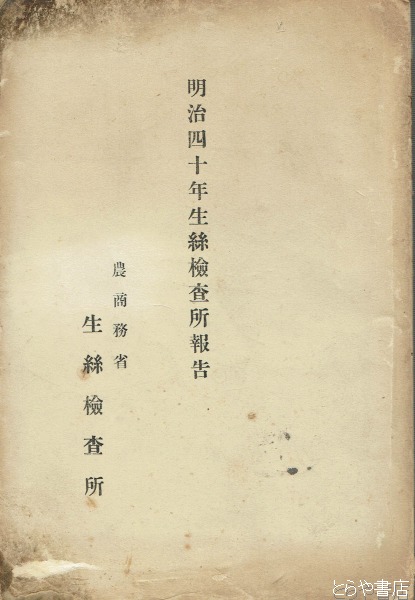 明治四十年生絲檢査所報告
農商務省
生絲檢査所
とらや書店